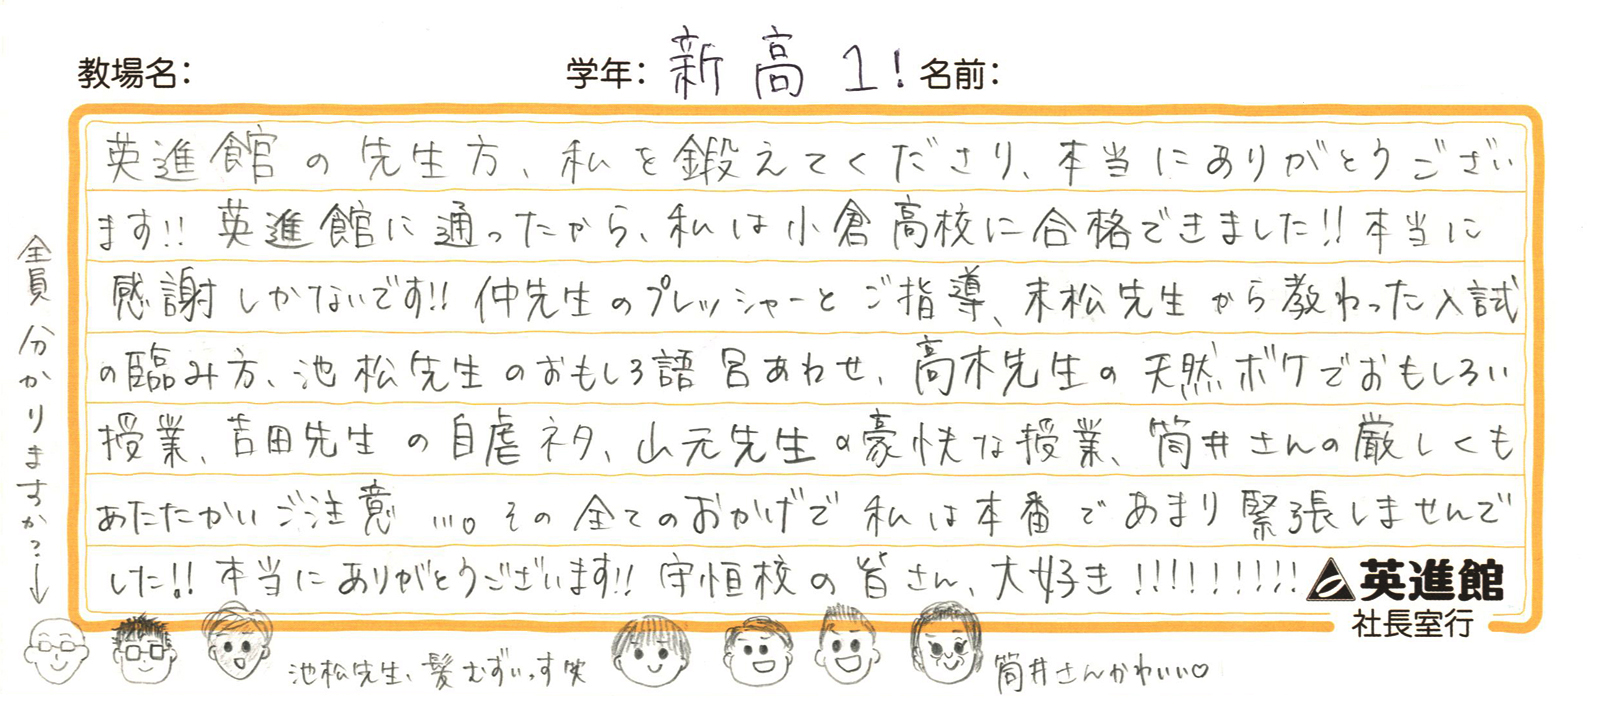 教場名:　学年: 新高1!　名前:
英進館の先生方、私を鍛えてくださり、本当にありがとうござい
ます!! 英進館に通ったから、私は小倉高校に合格できました!! 本当に
感謝しかないです!! 仲先生のプレッシャーとご指導、末松先生から教わった入試
の臨み方、池松先生のおもしろ語呂あわせ、高木先生の天然ボケでおもしろい
授業、吉田先生の自虐ネタ、山元先生の豪快な授業、筒井さんの厳しくも
あたたかいご注意…。その全てのおかげで私は本番であまり緊張しませんで
した!! 本当にありがとうございます!! 守恒校の皆さん、大好き!!!!!!!!!
英進館
社長室行
全員分かりますか?→
池松先生、髪むずいっす笑
筒井さんかわいい♡